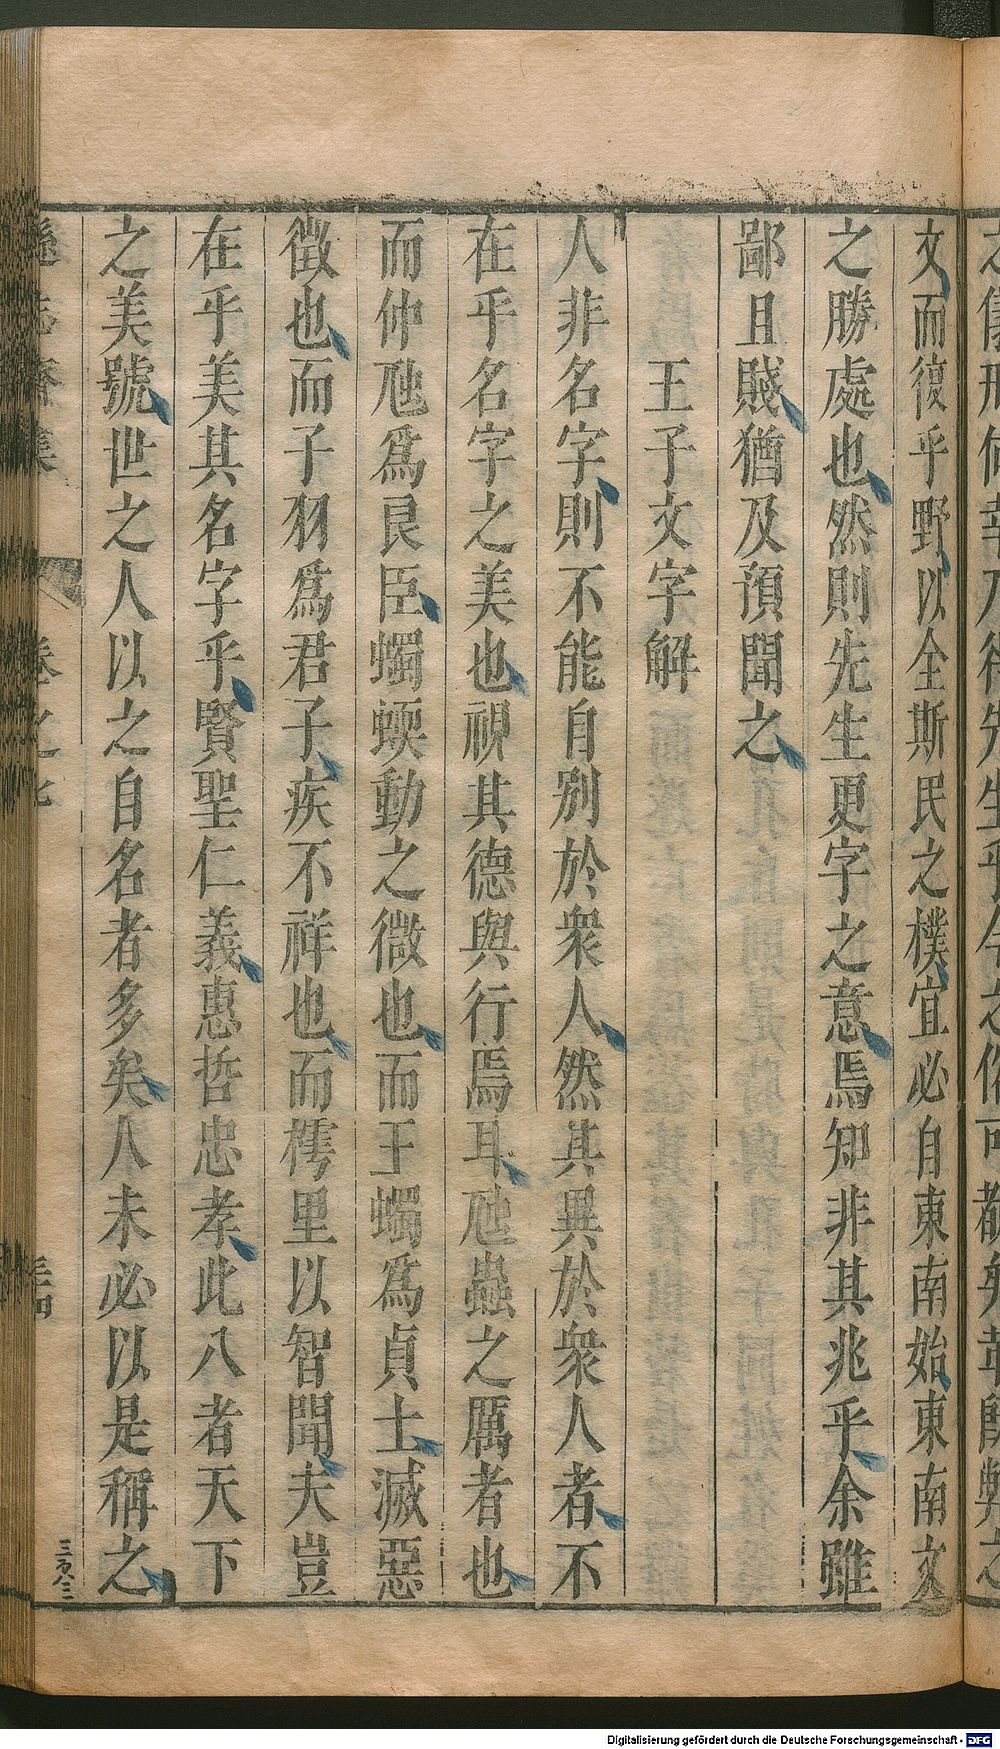 文而復乎野以全斯民之樸宜必自東南始東南文
之勝處也然則先生更字之意焉知非其兆乎余雖
鄙且賤猶及預聞之
王子文字解
人非名字則不能自別於衆人然其異於衆人者不
在乎名字之美也視其德與行焉耳虺蟲之厲者也
而仲虺爲良臣蠋蝡動之微也而王蠋爲貞士滅惡
徵也而子羽爲君子疾不祥也而樗里以智聞夫豈
在乎美其名字乎賢聖仁義惠哲忠孝此八者天下
之美號世之人以之自名者多矣人未必以是稱之
遜志齋集 卷之七 三四
Digitalisierung gefördert durch die Deutsche Forschungsgemeinschaft - DFG